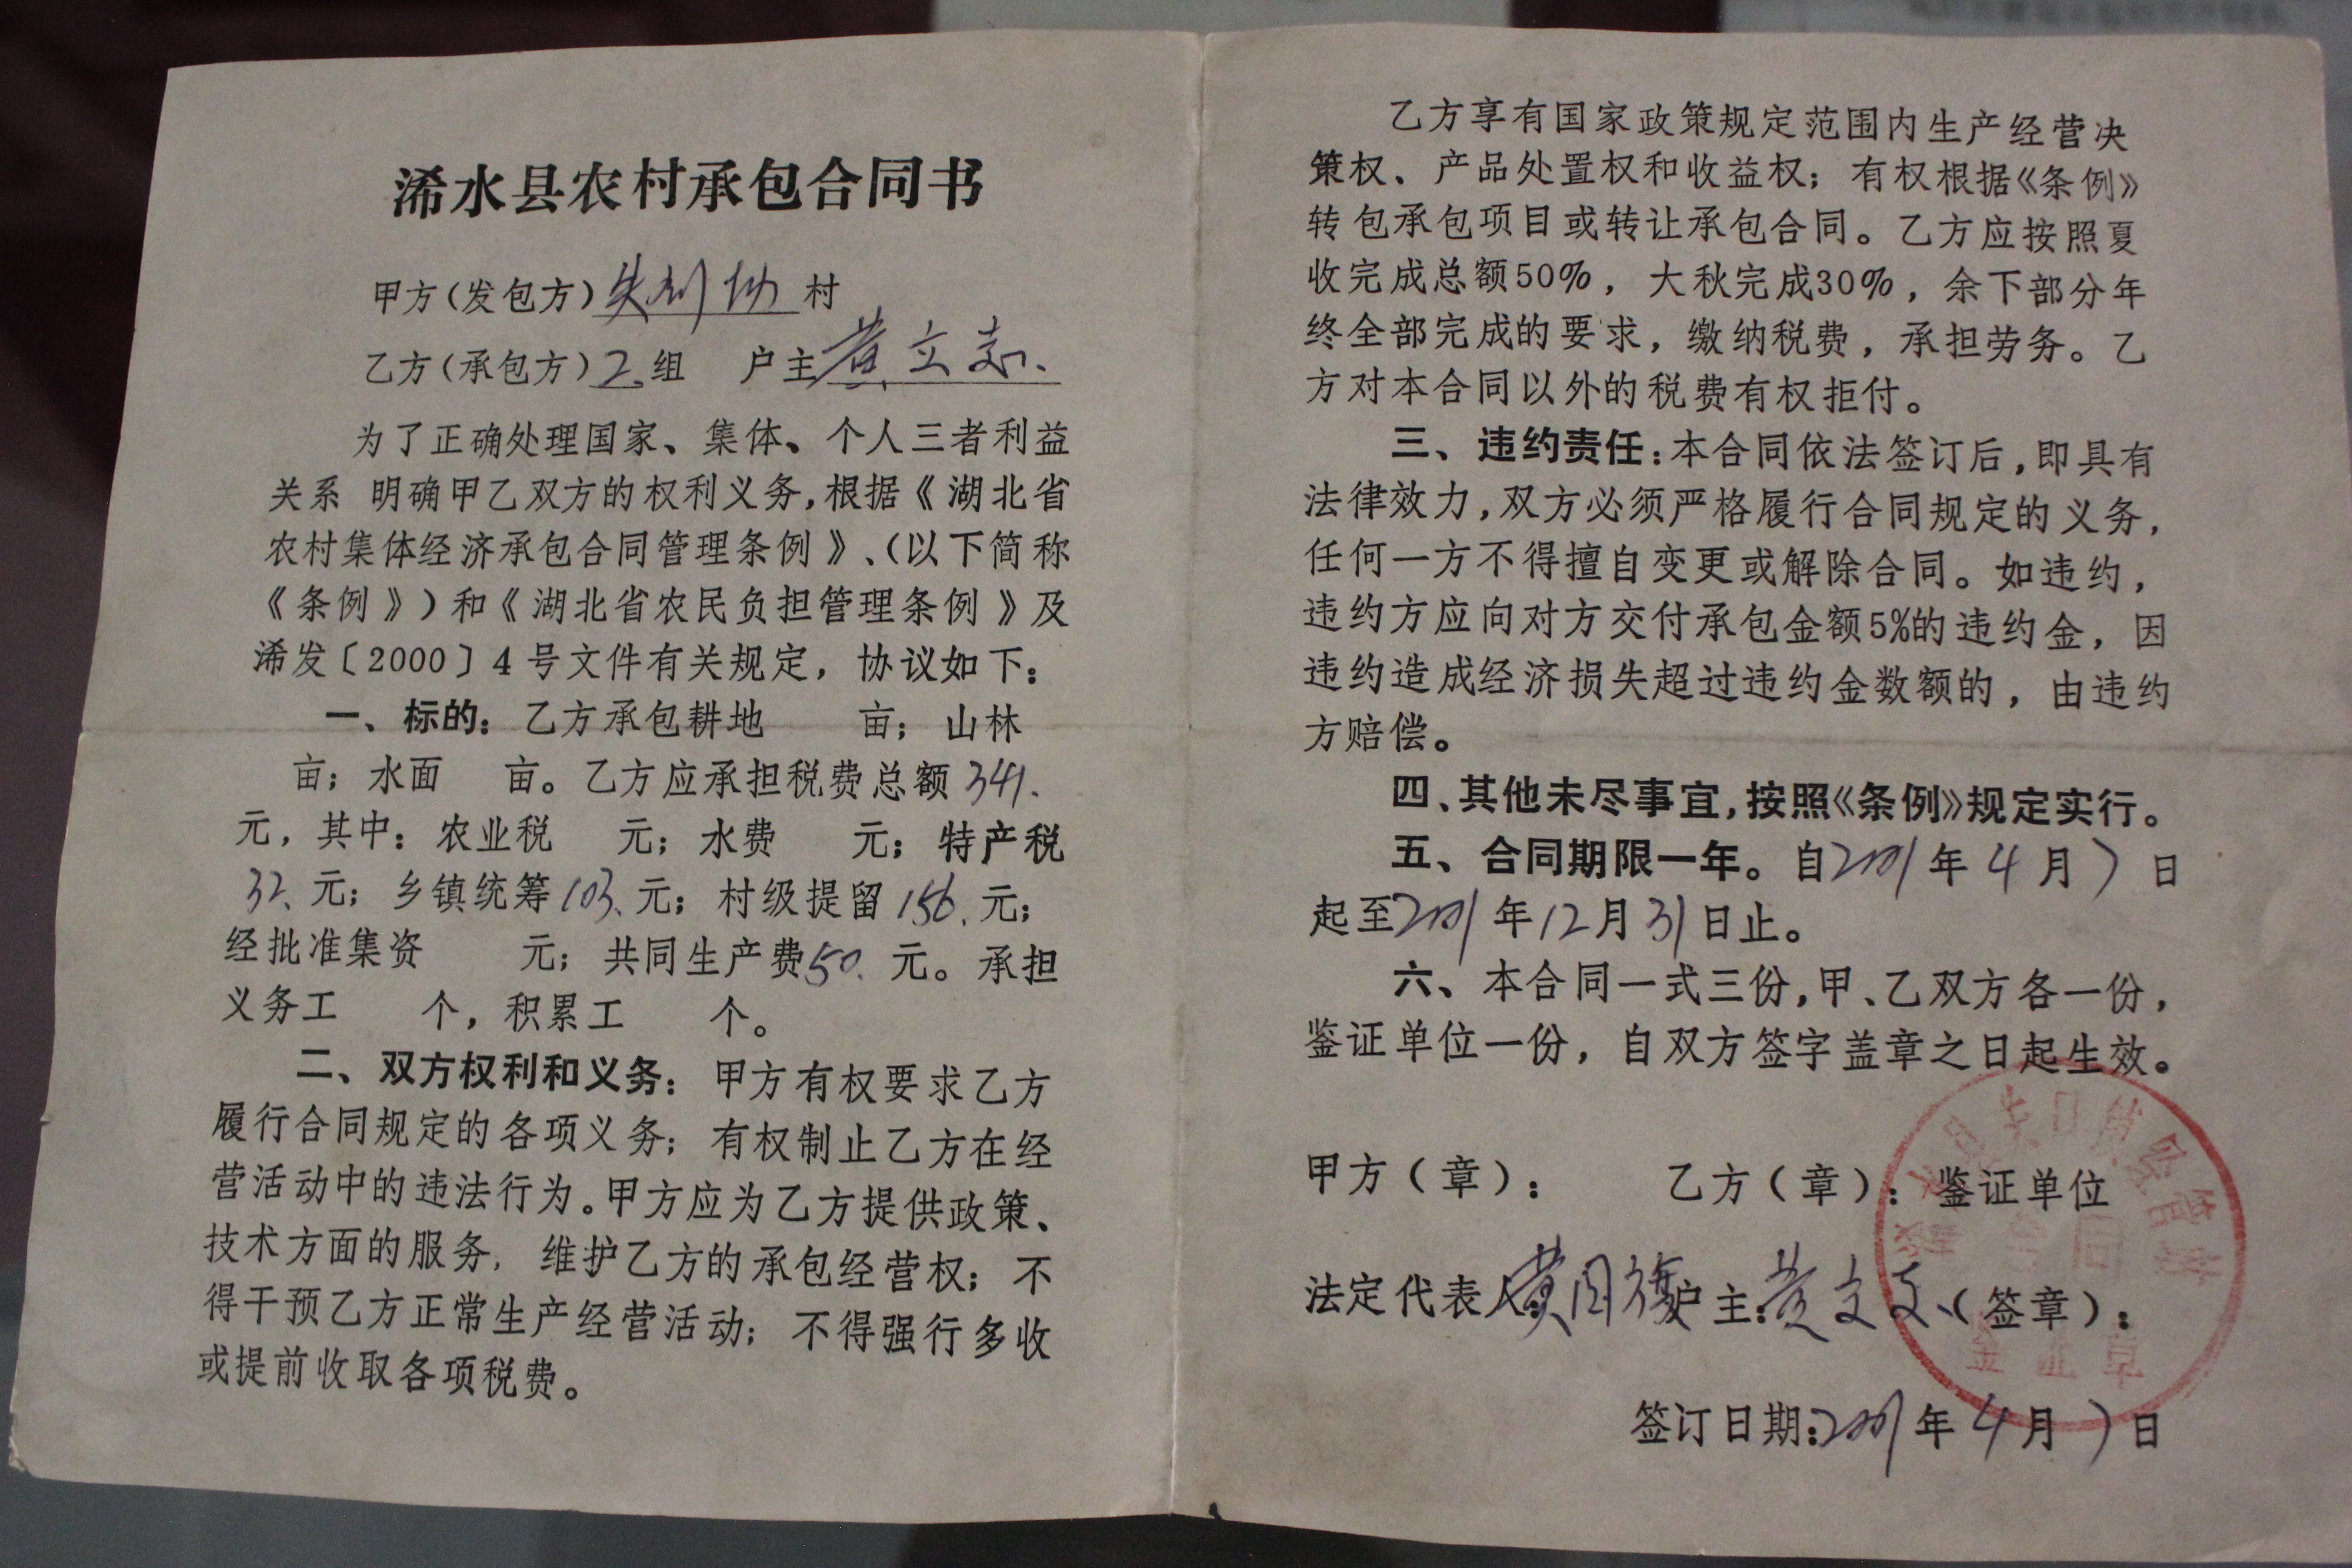 浠水县农村承包合同书
甲方（发包方） 村
乙方（承包方）2组 户主黄立志
为了正确处理国家、集体、个人三者利益
关系 明确甲乙双方的权利义务，根据《湖北省
农村集体经济承包合同管理条例》、（以下简称
《条例》）和《湖北省农民负担管理条例》及
浠发〔2000〕4号文件有关规定，协议如下：
一、标的：乙方承包耕地 亩；山林
亩；水面 亩。乙方应承担税费总额341.
元，其中：农业税 元；水费 元；特产税
32.元；乡镇统筹103.元；村级提留156.元；
经批准集资 元；共同生产费50.元。承担
义务工 个，积累工 个。
二、双方权利和义务：甲方有权要求乙方
履行合同规定的各项义务；有权制止乙方在经
营活动中的违法行为。甲方应为乙方提供政策、
技术方面的服务，维护乙方的承包经营权；不
得干预乙方正常生产经营活动；不得强行多收
或提前收取各项税费。
乙方享有国家政策规定范围内生产经营决
策权、产品处置权和收益权；有权根据《条例》
转包承包项目或转让承包合同。乙方应按照夏
收完成总额50%，大秋完成30%，余下部分年
终全部完成的要求，缴纳税费，承担劳务。乙
方对本合同以外的税费有权拒付。
三、违约责任：本合同依法签订后，即具有
法律效力，双方必须严格履行合同规定的义务，
任何一方不得擅自变更或解除合同。如违约，
违约方应向对方交付承包金额5%的违约金，因
违约造成经济损失超过违约金数额的，由违约
方赔偿。
四、其他未尽事宜，按照《条例》规定实行。
五、合同期限一年。自2001年4月7日
起至2001年12月31日止。
六、本合同一式三份，甲、乙双方各一份，
鉴证单位一份，自双方签字盖章之日起生效。
甲方（章）： 乙方（章）：鉴证单位
法定代表人 户主：黄立志（签章）：
签订日期：2001年4月7日
合同
鉴证章